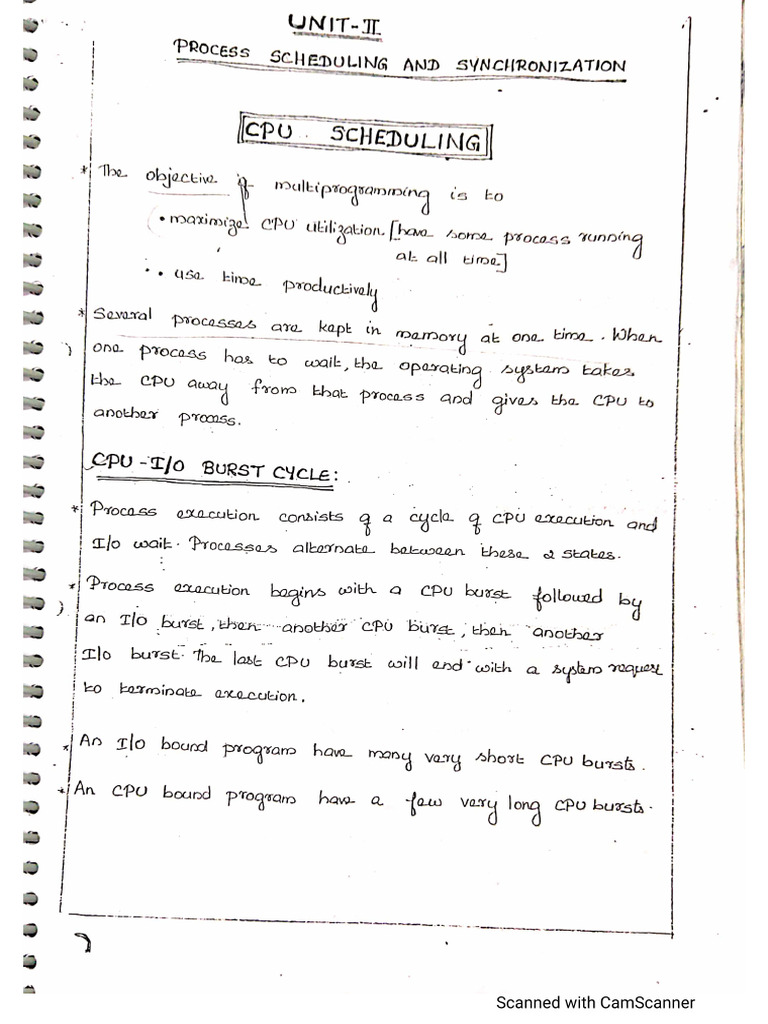 UNIT-II
PROCESS SCHEDULING AND SYNCHRONIZATION
CPU SCHEDULING
* The objective of multiprogramming is to
• maximize CPU utilization [have some process running
at all time]
• use time productively
* Several processes are kept in memory at one time. When
one process has to wait, the operating system takes
the CPU away from that process and gives the CPU to
another process.
CPU - I/O BURST CYCLE:
* Process execution consists of a cycle of CPU execution and
I/O wait. Processes alternate between these 2 states.
* Process execution begins with a CPU burst followed by
an I/O burst, then another CPU burst, then another
I/O burst. The last CPU burst will end with a system request
to terminate execution.
* An I/O bound program have many very short CPU bursts.
* An CPU bound program have a few very long CPU bursts.
Scanned with CamScanner